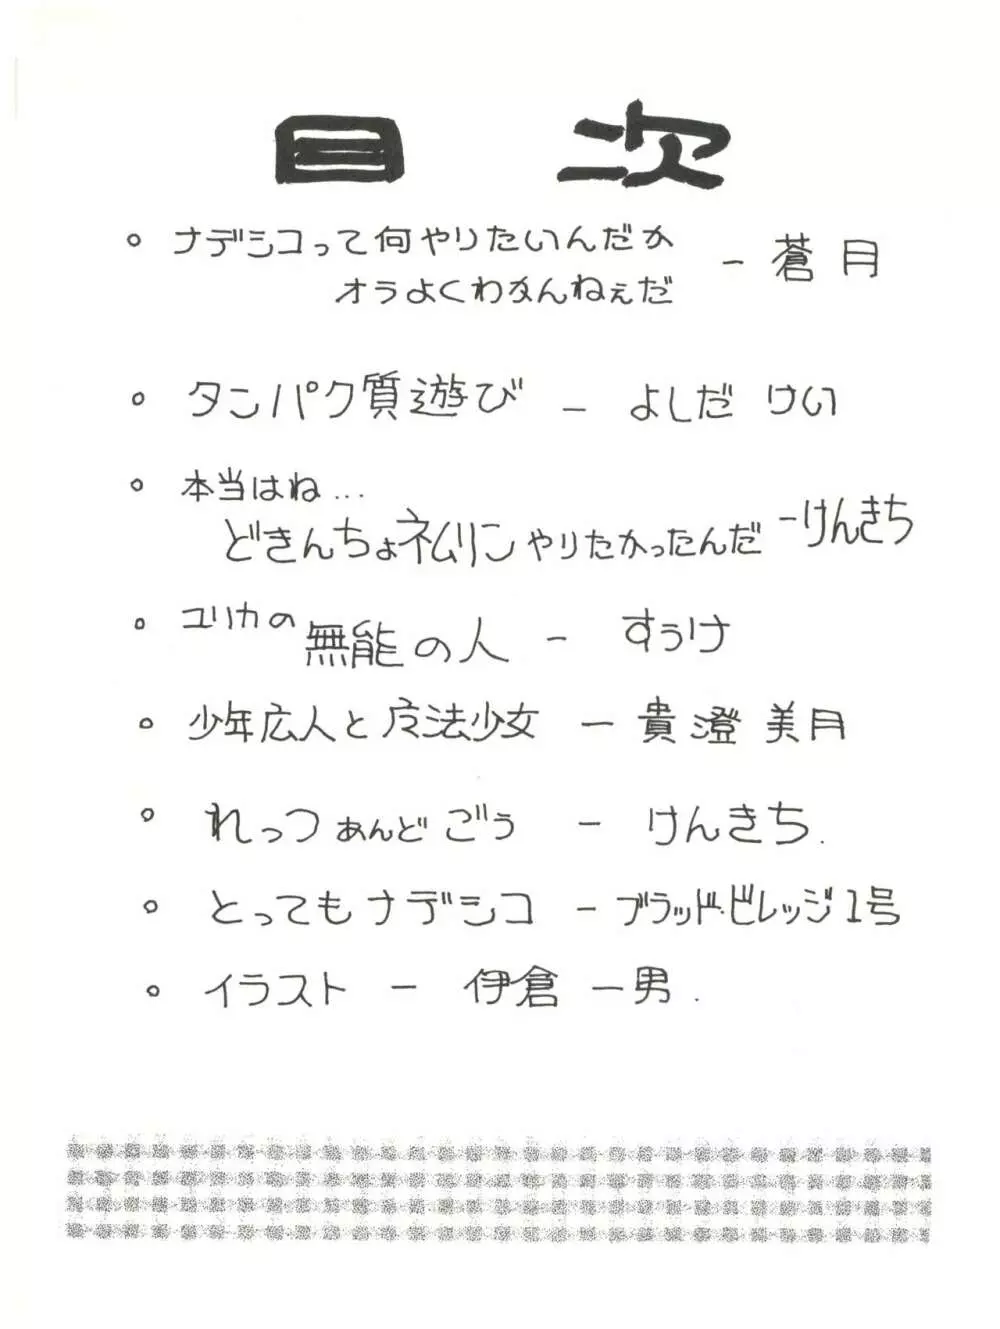 目次
。ナデシコって何やりたいんだか
オラよくわかんねぇだ - 蒼月
。タンパク質遊び - よしだ けい
。本当はね…
どきんちょネムリンやりたかったんだ - けんきち
。ユリカの無能の人 - すぅけ
。少年広人と魔法少女 - 貴澄 美月
。れっつあんどごう - けんきち.
。とってもナデシコ - ブラッド・ビレッジ1号
。イラスト - 伊倉 一男.